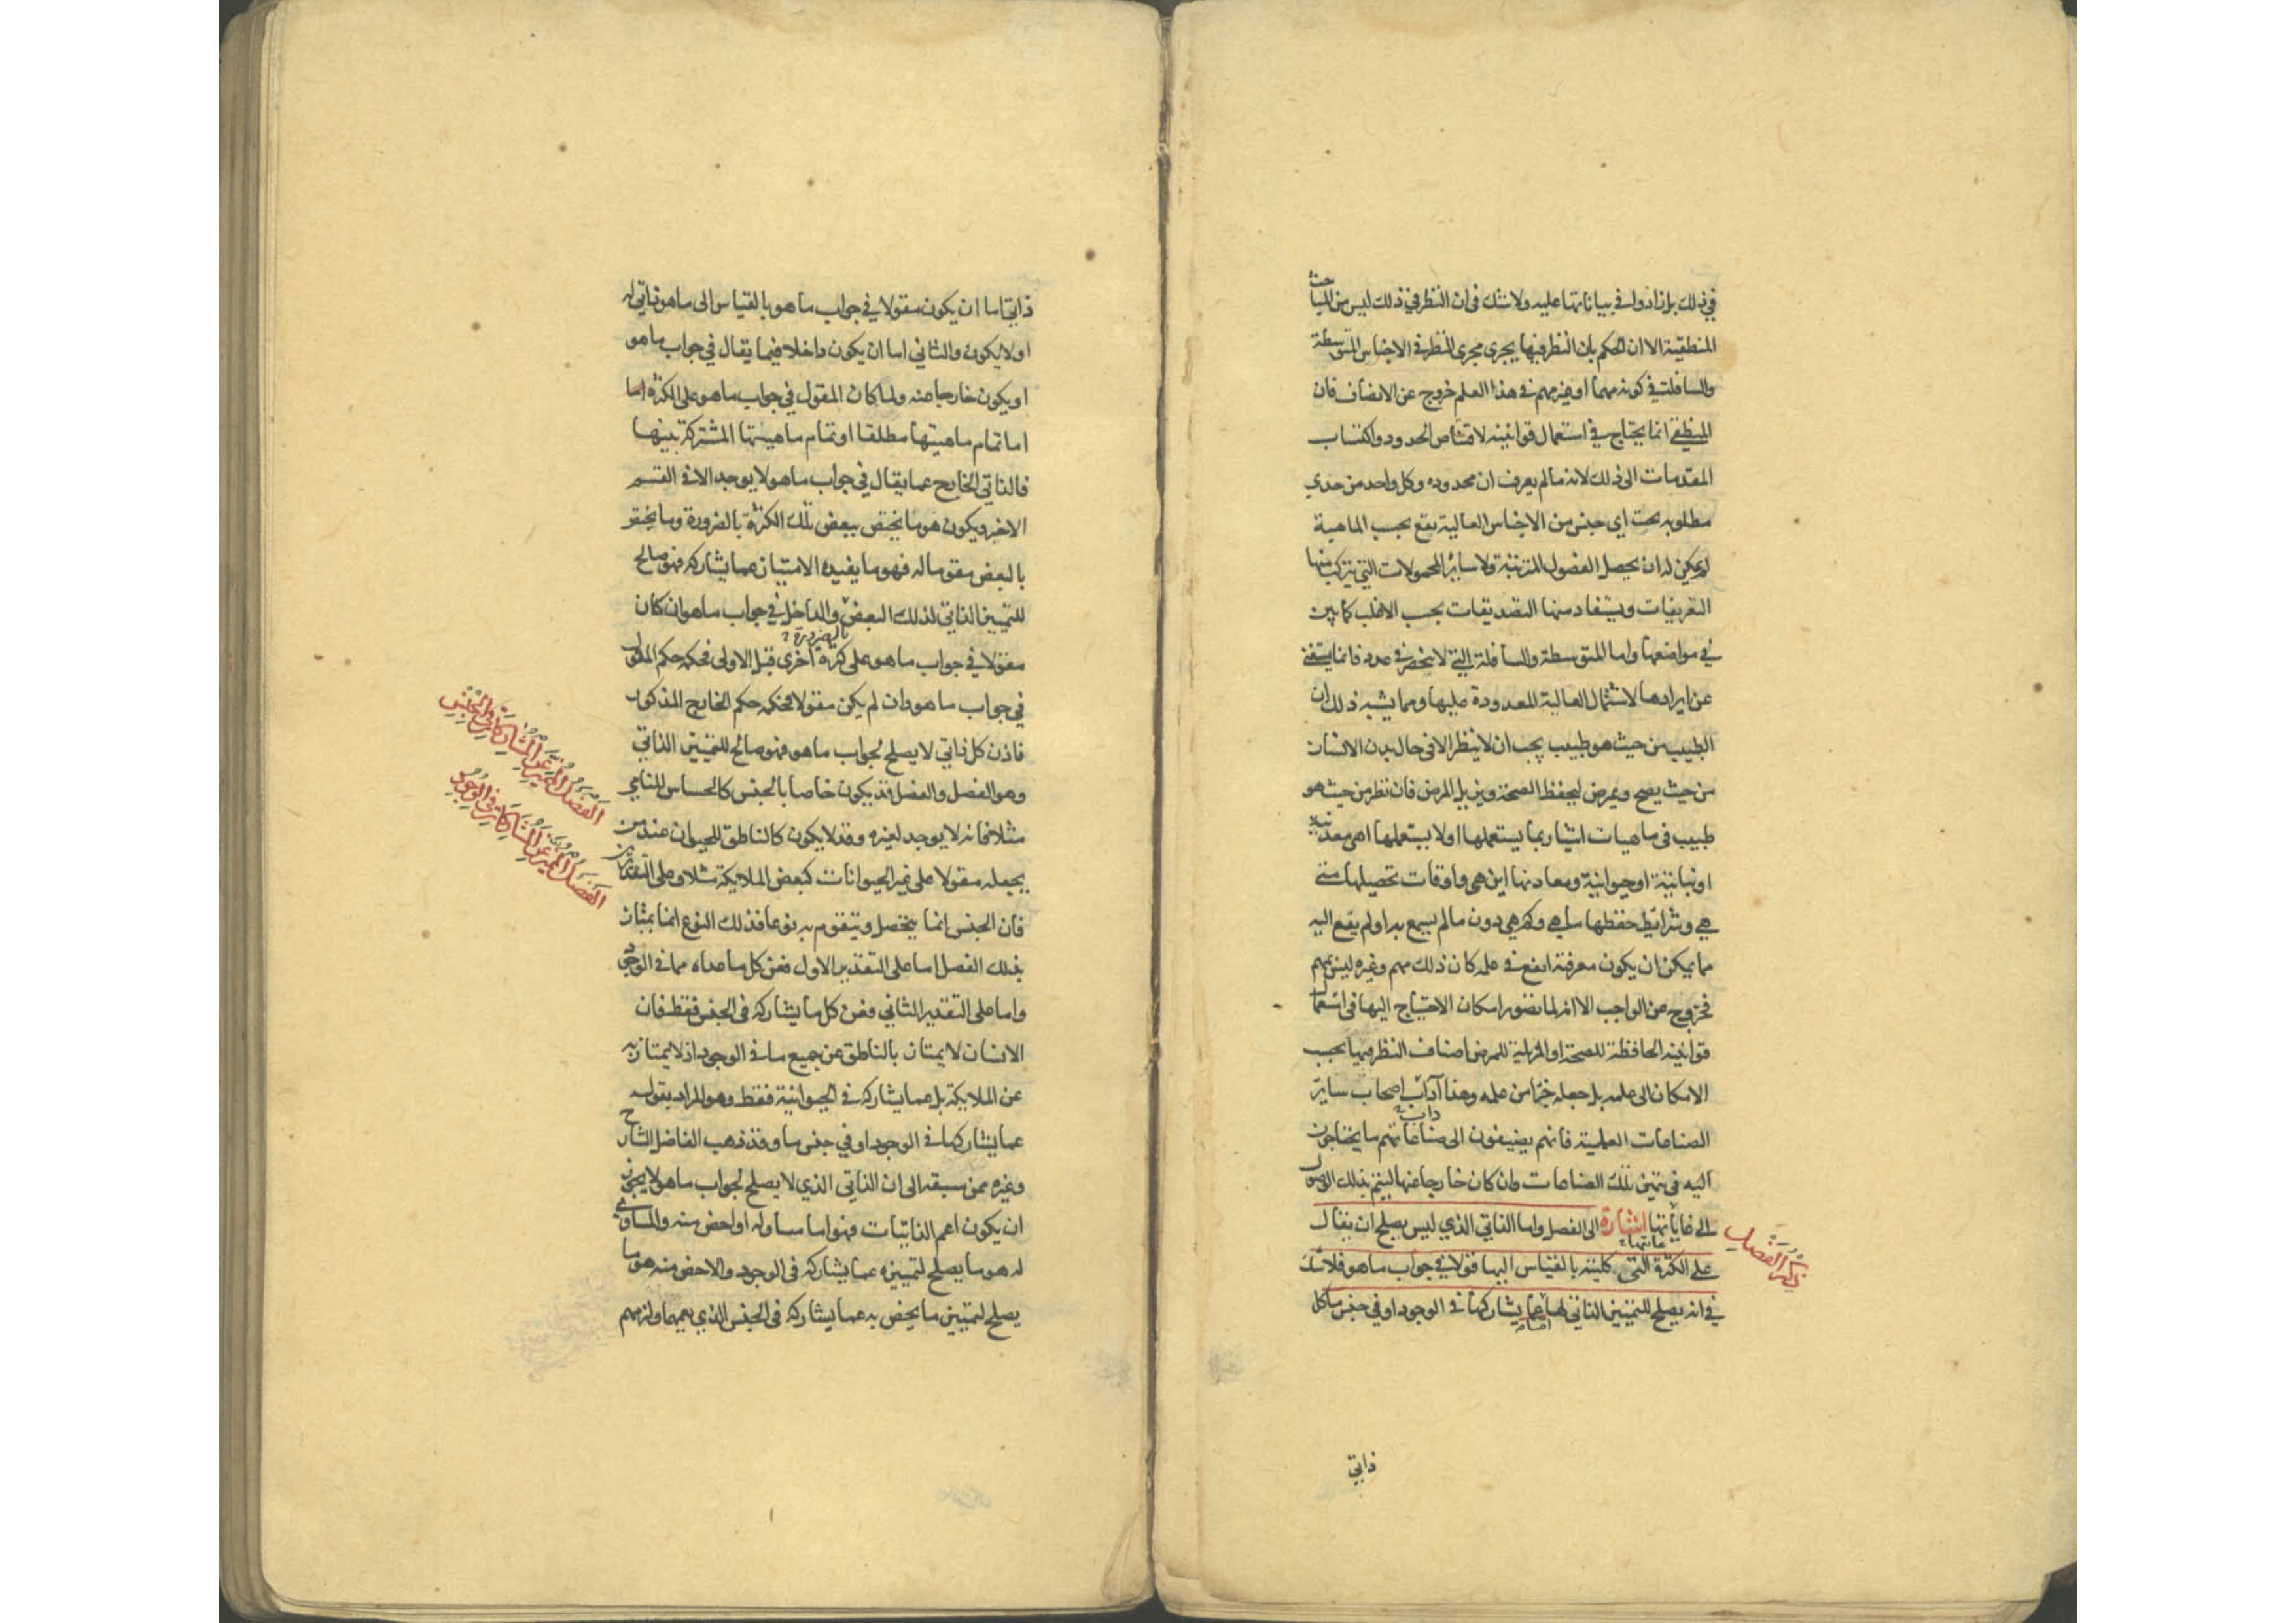 في ذلك بل زادوا في بياناتها عليه ولا شك في ان النظر في ذلك ليس من المباحث
المنطقية الا ان الحكم بان النظر فيها يجرى مجرى النظر في الاجناس المتوسطة
والسافلة في كونه مهما او غير مهم في هذا العلم خروج عن الانصاف فان
المنطقي انما يحتاج في استعمال قوانينه لاقتناص الحدود واكتساب
المقدمات الى ذلك لانه ما لم يعرف ان محدوده وكل واحد من حدي
مطلوبه تحت اي جنس من الاجناس العالية يقع بحسب الماهية
لم يمكن له ان يحصل الفصول المترتبة ولا ساير المحمولات التي يتركب منها
التعريفات ويستفاد منها التصديقات بحسب الاغلب كما يبين
في مواضعها واما المتوسطة والسافلة التي لا تنحصر في عدد فانما يستغنى
عن ايرادها لاشتمال العالية المعدودة عليها ومما يشبه ذلك ان
الطبيب من حيث هو طبيب يجب ان لا ينظر الا في حال بدن الانسان
من حيث يصح ويمرض ليحفظ الصحة ويزيل المرض فان نظر من حيث هو
طبيب في ماهيات اشيا ربما يستعملها او لا يستعملها اهى معدنية
او نباتية او حيوانية ومعادنها اين هي واوقات تحصيلها متى
هي وشرائط حفظها ما هي وكم هي دون ما لم يسمع به او لم يقع اليه
مما يمكن ان يكون معرفة انفع في علمه كان ذلك مهم وغيره ليس بمهم
فخروج عن الواجب الا انه لما تصور امكان الاحتياج اليها في استعمال
قوانينه الحافظة للصحة او المزيلة للمرض اضاف النظر فيها بحسب
الامكان الى علمه بل جعله جزا من علمه وهذا آداب اصحاب ساير
داب
الصناعات العلمية فانهم يضيفون الى صناعاتهم ما يحتاجون
اليه في تتميم تلك الصناعات وان كان خارجا عنها ليتم بذلك الوصول
الى غاياتها اشارة الى الفصل واما الذاتي الذي ليس يصلح ان يقال
غاياتها
ذكر الفصل
على الكثرة التي كليته بالقياس اليها قولا في جواب ما هو فلا شك
في انه يصلح للتمييز الذاتي لها عما يشاركها في الوجود او في جنس ما كل
ذاتي
ذاتي اما ان يكون مقولا في جواب ما هو بالقياس الى ما هو ذاتي له
او لا يكون والثاني اما ان يكون داخلا فيما يقال في جواب ما هو
او يكون خارجا عنه ولما كان المقول في جواب ما هو على الكثرة اما
اما تمام ماهيتها مطلقا او تمام ماهيتها المشتركة بينها
فالذاتي الخارج عما يقال في جواب ما هو لا يوجد الا في القسم
الاخير ويكون هو ما يختص ببعض تلك الكثرة بالضرورة وما يختص
بالبعض مقوما له فهو ما يفيده الامتياز عما يشاركه فهو صالح
للتمييز الذاتي لذلك البعض والداخل في جواب ما هو ان كان
بالضرورة
مقولا في جواب ما هو على كثرة اخرى قبل الاولى فحكمه حكم المقول
في جواب ما هو وان لم يكن مقولا فحكمه حكم الخارج المذكور
فاذن كل ذاتي لا يصلح لجواب ما هو فهو صالح للتمييز الذاتي
وهو الفصل والفصل قد يكون خاصا بالجنس كالحساس للنامي
الفصل المميز عن المشاركة في الجنس
مثلا فانه لا يوجد لغيره وقد لا يكون كالناطق للحيوان عند من
الفصل المميز عن المشاركة في الوجود
يجعله مقولا على غير الحيوانات كبعض الملايكة مثلا وعلى التقديرين
فان الجنس انما يتحصل ويتقوم به نوعا فذلك النوع انما يمتاز
بذلك الفصل اما على التقدير الاول فعن كل ما عداه مما في الوجود
واما على التقدير الثاني فعن كل ما يشاركه في الجنس فقط فان
الانسان لا يمتاز بالناطق عن جميع ما في الوجود اذ لا يمتاز به
عن الملايكة بل عما يشاركه في الحيوانية فقط وهو المراد بقوله
عما يشاركها في الوجود او في جنس ما وقد ذهب الفاضل الشارح
وغيره ممن سبقه الى ان الذاتي الذي لا يصلح لجواب ما هو لا يجوز
ان يكون اعم الذاتيات فهو اما مساو له او اخص منه والمساوي
له هو ما يصلح لتمييزه عما يشاركه في الوجود والاخص منه هو ما
يصلح لتمييز ما يختص به عما يشاركه في الجنس الذي يعمهما ولزمهم